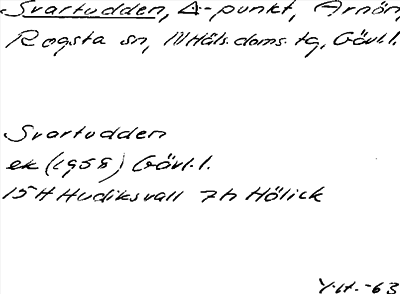 Svartudden, Δ-punkt, Arnön,
Rogsta sn, III Häls. doms. tg, Gävl.l.
Svartudden
ek (1958) Gävl.l.
15H Hudiksvall 7h Hölick
Y.H. -63